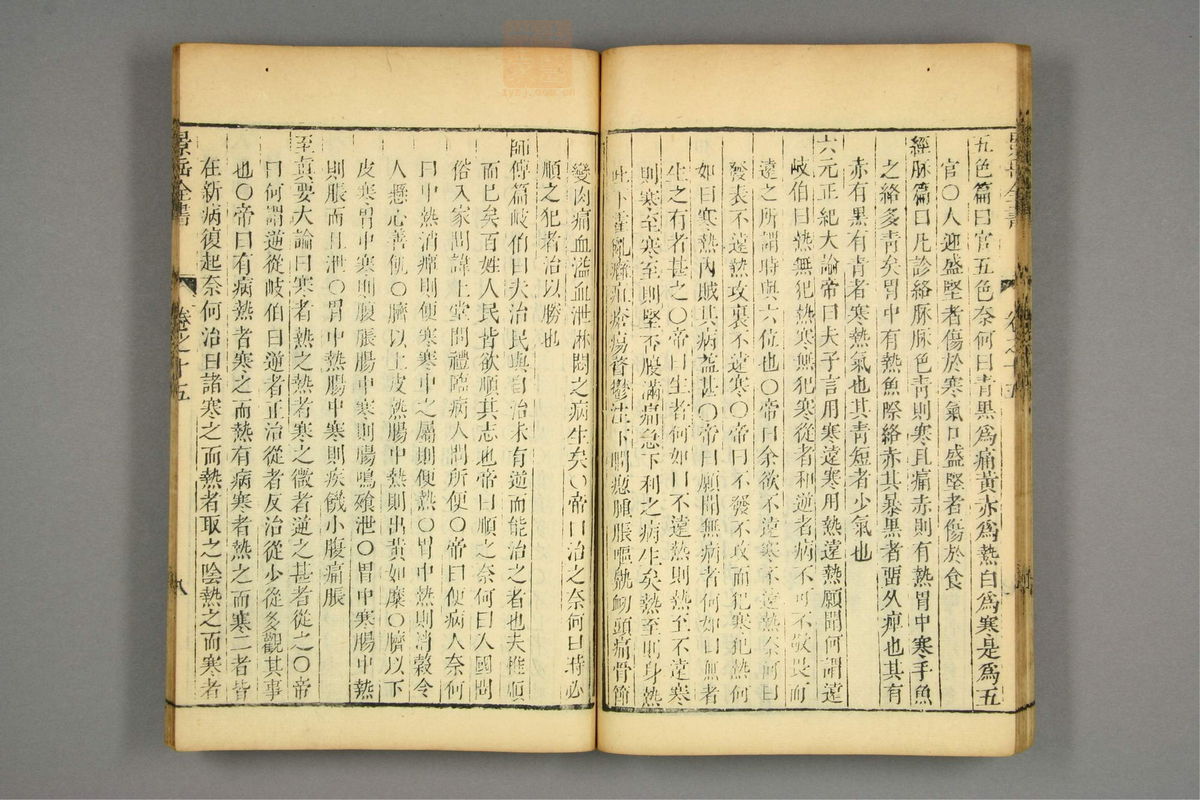 五色篇曰官五色奈何曰青黑爲痛黃赤爲熱白爲寒是爲五
官○人迎盛堅者傷於寒氣口盛堅者傷於食
經脉篇曰凡診絡脉脉色青則寒且痛赤則有熱胃中寒手魚
之絡多青矣胃中有熱魚際絡赤其暴黑者畱久痺也其有
赤有黑有青者寒熱氣也其青短者少氣也
六元正紀大論帝曰夫子言用寒遠寒用熱遠熱願聞何謂遠
岐伯曰熱無犯熱寒無犯寒從者和逆者病不可不敬畏而
遠之所謂時與六位也○帝曰余欲不遠寒不遠熱奈何曰
發表不遠熱攻裏不遠寒○帝曰不發不攻而犯寒犯熱何
如曰寒熱內賊其病益甚○帝曰願聞無病者何如曰無者
生之有者甚之○帝曰生者何如曰不遠熱則熱至不遠寒
則寒至寒至則堅否腹滿痛急下利之病生矣熱至則身熱
吐下霍亂癰疽瘡瘍瞀鬱注下瞤瘛腫脹嘔鼽衂頭痛骨節
變肉痛血溢血泄淋閟之病生矣○帝曰治之奈何曰時必
順之犯者治以勝也
師傳篇岐伯曰夫治民與自治未有逆而能治之者也夫惟順
而已矣百姓人民皆欲順其志也帝曰順之奈何曰入國問
俗入家問諱上堂問禮臨病人問所便○帝曰便病人奈何
曰中熱消癉則便寒寒中之屬則便熱○胃中熱則消穀令
人懸心善飢○臍以上皮熱腸中熱則出黃如糜○臍以下
皮寒胃中寒則腹脹腸中寒則腸鳴飱泄○胃中寒腸中熱
則脹而且泄○胃中熱腸中寒則疾饑小腹痛脹
至眞要大論曰寒者熱之熱者寒之微者逆之甚者從之○帝
曰何謂逆從岐伯曰逆者正治從者反治從少從多觀其事
也○帝曰有病熱者寒之而熱有病寒者熱之而寒二者皆
在新病復起奈何治曰諸寒之而熱者取之陰熱之而寒者
景岳全書
卷之十五
八